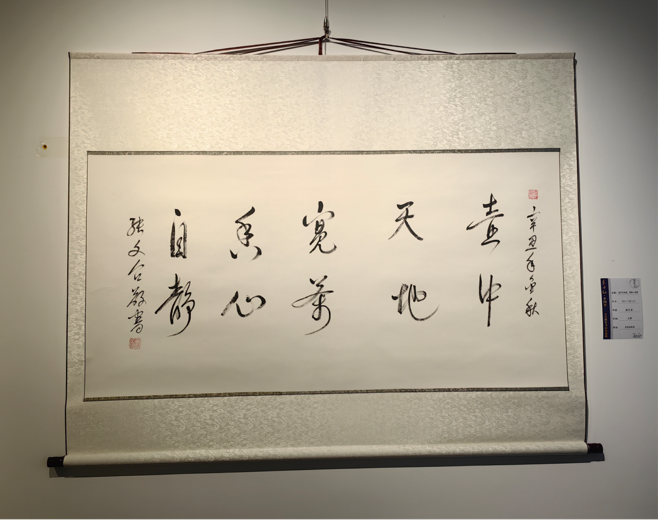 辛丑年金秋
壶中
天地
宽茶
香心
自静
張文合敬書